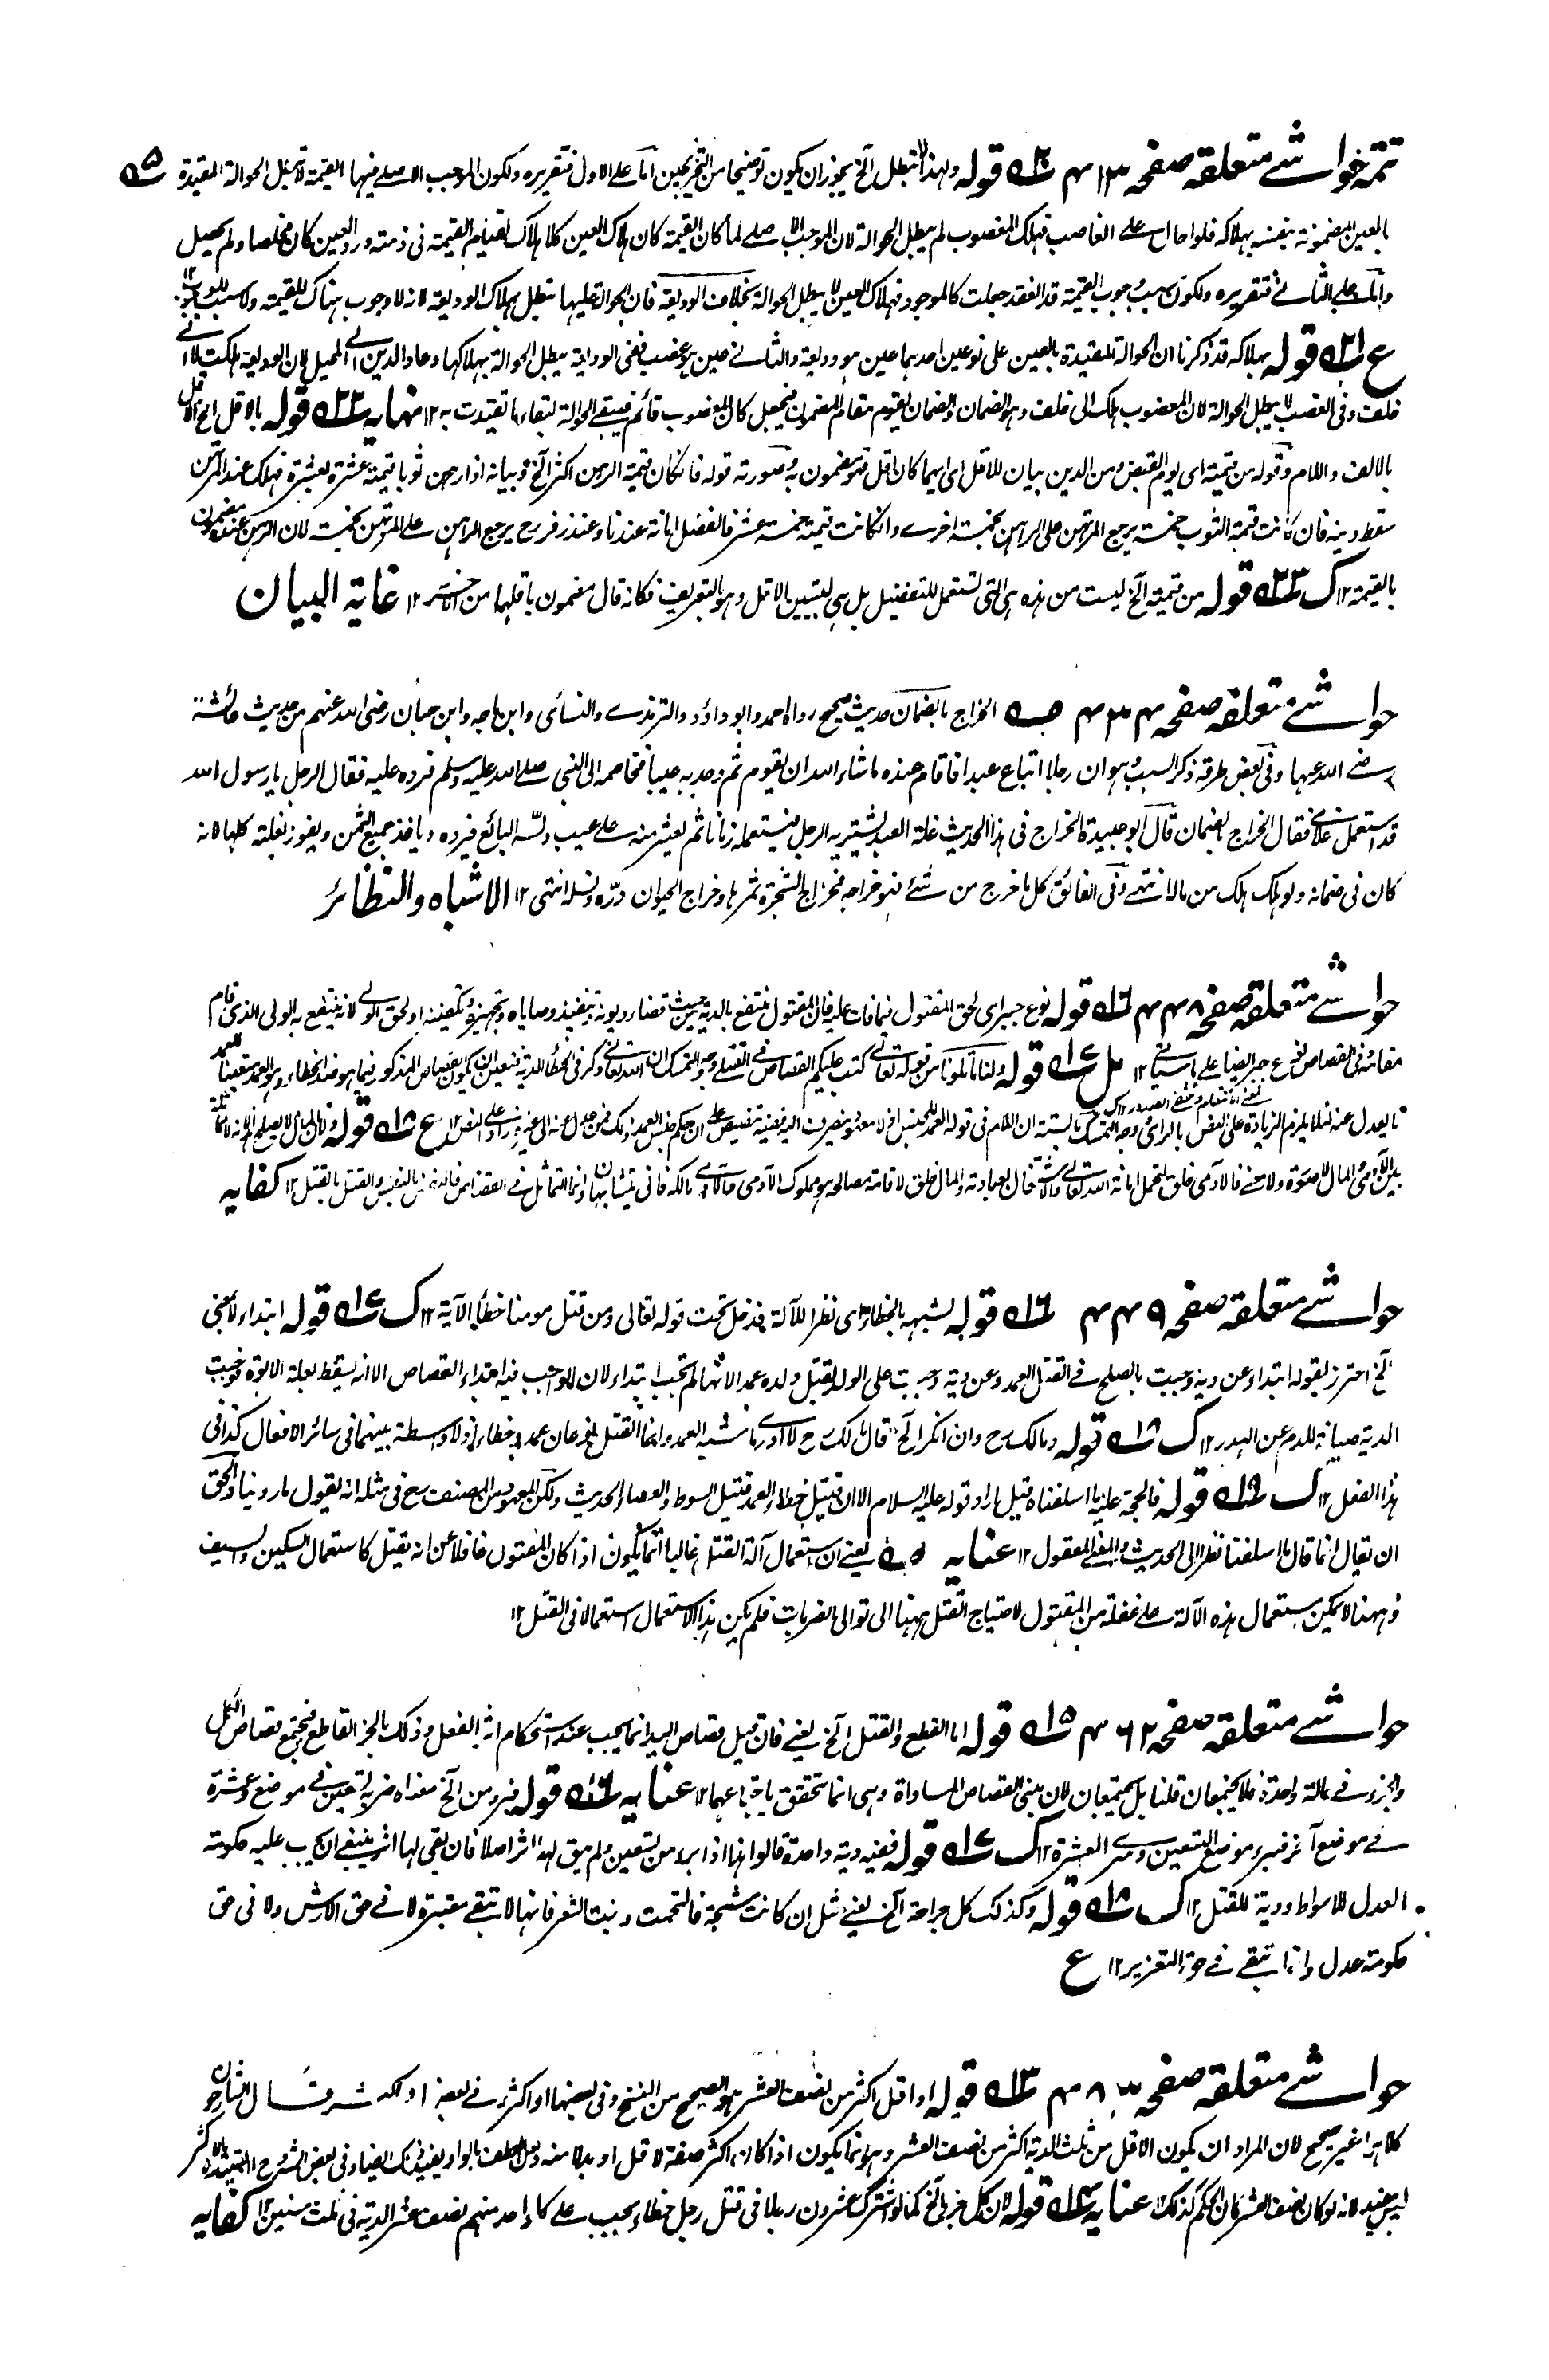 تتمہ حواشے متعلقہ صفحہ ۴۱۳ ۲۰ قولہ ولہذا لا تبطل الخ یجوز ان یکون توضیحا من التخریجین اما علی الاول فتقریرہ ولکون الموجب الاصلے فیہا القیمۃ لا تبطل الحوالۃ المقیدۃ
بالعین المضمونۃ بنفسہ بہلاکہ فلو احال علے الغاصب فہلک المغصوب لم یبطل الحوالۃ لان الموجب الاصلے لما کان القیمۃ کان ہلاک العین کلا ہلاک لقیام القیمۃ فی ذمتہ ورد العین کان مخلصا ولم یحصل
واما علے الثانے فتقریرہ ولکون سبب وجوب القیمۃ قد انعقد جعلت کالموجود فہلاک العین لا یبطل الحوالۃ بخلاف الودیعۃ فان الحوالۃ علیہا تبطل بہلاک الودیعۃ لانہ لا وجوب ہناک للقیمۃ ولا سبب للوجوب ۱۲
ع ۲۱ قولہ بہلاکہ قد ذکرنا ان الحوالۃ المقیدۃ بالعین علی نوعین احدہما عین ہو ودیعۃ والثانے عین ہو غصب ففی الودیعۃ یبطل الحوالۃ بہلاکہا وعاد الدین الے المحیل لان الودیعۃ ہلکت لا الے
خلف وفی الغصب لا یبطل الحوالۃ لان المغصوب ہلک الی خلف وہو الضمان والضمان یقوم مقام المضمون فیجعل کان المغصوب قائم فیبقے الحوالۃ لبقاء ما تقیدت بہ ۱۲ نہایہ ۲۲ قولہ بالاقل الخ الاقل
بالالف واللام وقولہ من قیمتہ ای یوم القبض ومن الدین بیان للاقل ای ایہما کان اقل فہو مضمون بہ وصورتہ قولہ فان کان قیمۃ الرہن اکثر الخ وبیانہ اذا رہن ثوبا قیمتہ عشرۃ بعشرۃ فہلک عند المرتہن
سقط دینہ فان کانت قیمۃ الثوب خمسۃ یرجع المرتہن علی الراہن بخمسۃ اخرے وان کانت قیمتہ خمسۃ عشر فالفضل امانۃ عندنا وعند زفر رح یرجع الراہن علے المرتہن بخمسۃ لان الرہن عندہ مضمون
بالقیمۃ ۱۲ ک ۲۳ قولہ من قیمتہ الخ لیست من ہذہ ہی التی تستعمل للتفضیل بل ہی لتبیین الاقل وہو بالتعریف فکانہ قال مضمون باقلہما من ۱۲ غایۃ البیان
حواشے متعلقہ صفحہ ۴۳۴ الخراج بالضمان حدیث صحیح رواہ احمد وابو داؤد والترمذے والنسائی وابن ماجہ وابن حبان رضی اللہ عنہم من حدیث عائشۃ
رضے اللہ عنہا وفی بعض طرقہ ذکر السبب وہو ان رجلا ابتاع عبدا فاقام عندہ ما شاء اللہ ان یقوم ثم وجد بہ عیبا فخاصمہ الی النبی صلے اللہ علیہ وسلم فردہ علیہ فقال الرجل یا رسول اللہ
قد استعمل غلامے فقال الخراج بالضمان قال ابو عبیدۃ الخراج فی ہذا الحدیث غلۃ العبد یشتریہ الرجل فیستعملہ زمانا ثم یعثر منہ علے عیب دلسہ البائع فیردہ ویاخذ جمیع الثمن ویفوز بغلتہ کلہا لانہ
کان فی ضمانہ ولو ہلک ہلک من مالہ انتہے وفی الفائق کل ما خرج من شئ فہو خراجہ فخراج الشجرۃ ثمرہا وخراج الحیوان درہ ونسلہ انتہی ۱۲ الاشباہ والنظائر
حواشے متعلقہ صفحہ ۴۴۸ ۱۶ قولہ نوع جبر ای لحق المقتول فیما فات علیہ فان المقتول منتفع بالدیۃ حیث قضاء دیونہ وتنفیذ وصایاہ وتجہیزہ وتکفینہ او لحق الولے لانہ ینتفع بہ الولی الذی قام
مقامہ فی القصاص نوع جبر ایضا علے ما سیاتے ۱۲ مل ۱۷ قولہ ولنا ما تلونا من قولہ تعالے کتب علیکم القصاص فے القتلے وجہ التمسک ان اللہ تعالے ذکر فی الخطأ الدیۃ فتعین ان یکون القصاص المذکور فیما ہو ضد الخطاء وہو العمد
لا یعدل عنہ لئلا یلزم الزیادۃ علے النص بالرای وجہ التمسک بالسنۃ ان اللام فی قولہ العمد للجنس اذ لا معہود ینصرف الیہ ففیہ تنصیص علے ان حکم جنس العمد ذلک فمن عدل عنہ الی غیرہ زاد علے النص ۱۲ ع ۱۸ قولہ ولان المال لا یصلح الخ
بین الآدمی والمال لا صورۃ ولا معنے فالآدمی خلق لتحمل امانۃ اللہ تعالے والاشتغال بعبادتہ والمال خلق لاقامۃ مصالحہ ہو مملوک الآدمی فالآدمے مالکہ فانی یتشابہان وانما التماثل فے القصاص فانہ النفس بالنفس والقتل بالقتل ۱۲ کفایہ
حواشے متعلقہ صفحہ ۴۴۹ ۱۶ قولہ لشبہہ بالخطاء ای نظرا للآلۃ فدخل تحت قولہ تعالی ومن قتل مومنا خطأ الآیۃ ۱۲ ک ۱۷ قولہ ابتداء لا بمعنی
الخ احترز بقولہ ابتداء عن دیۃ وجبت بالصلح فے القتل العمد وعن دیۃ وجبت علی الوالد بقتل ولدہ عمدا لانہا لم تجب ابتداء لان الواجب فیہ ابتداء القصاص الا انہ یسقط بعلۃ الابوۃ فوجبت
الدیۃ صیانۃ للدم عن الہدر ۱۲ ک ۱۸ قولہ ومالک رح وان انکر الخ قال مالک رح لا ادرے ما شبہ العمد وانما القتل نوعان عمد وخطاء اذ لا واسطۃ بینہما فی سائر الافعال کذا فی
ہذا الفعل ۱۲ ک ۱۹ قولہ فالحجۃ علیہ ما اسلفناہ قیل اراد قولہ علیہ السلام الا ان قتیل خطاء العمد قتیل السوط والعصاء الحدیث ولکن المعہود من المصنف رح فی مثلہ ان یقول ما روینا والحق
ان یقال انما قال ما اسلفنا نظرا الی الحدیث والمعنے المعقول ۱۲ عنایہ یعنے ان استعمال آلۃ القتل غالبا انما یکون اذا کان المقتول غافلا عن انہ یقتل کاستعمال السکین والسیف
وہہنا لا یمکن استعمال ہذہ الآلۃ علے غفلۃ من المقتول لاحتیاج القتل ہہنا الی توالی الضربات فلم یکن ہذا الاستعمال استعمالا فی القتل ۱۲
حواشے متعلقہ صفحہ ۴۶۲ ۱۵ قولہ اما القطع والقتل الخ یعنے فان قیل قصاص الید انما یجب عند استحکام اثر الفعل وذلک بالجز القاطع فیجتمع قصاص الکل
والجزء فے حالۃ واحدۃ فلا یجتمعان قلنا بل یجتمعان لان مبنی القصاص المساواۃ وہی انما تتحقق باجتماعہما ۱۲ عنایہ ۱۶ قولہ فبرء من الخ معناہ ضربہ تسعین فے موضع وعشرۃ
فے موضع آخر فبرء موضع التسعین وسرے العشرۃ ۱۲ ک ۱۷ قولہ ففیہ دیۃ واحدۃ قالوا ہذا اذا برء من تسعین ولم یبق لہا اثر اصلا فان بقی لہا اثر ینبغے ان یجب علیہ حکومۃ
العدل للاسواط ودیۃ للقتل ۱۲ ک ۱۸ قولہ وکذلک کل جراحۃ الخ یعنے مثل ان کانت شجۃ فالتحمت ونبت الشعر فانہا لا تبقے معتبرۃ لا فے حق الارش ولا فی حق
حکومۃ عدل وانما تبقے فے حق التعزیر ۱۲ ع
حواشے متعلقہ صفحہ ۴۸۳ ۱۳ قولہ او اقل اکثر من نصف العشر ہو الصحیح من النسخ وفی بعضہا او اکثر وفے بعض
کلاہما غیر صحیح لان المراد ان یکون الاقل من ثلث الدیۃ اکثر من نصف العشر وہو انما یکون اذا کان اکثر صفۃ لاقل او بدلا منہ
لیس بمفید لانہ لو کان نصف العشر کان الحکم کذلک ۱۲ عنایہ ۱۴ قولہ لان کل جزء الخ کما لو اشترک عشرون رجلا فی قتل رجل خطاء یجب علے کل احد منہم نصف عشر الدیۃ فی ثلث سنین ۱۲ کفایہ